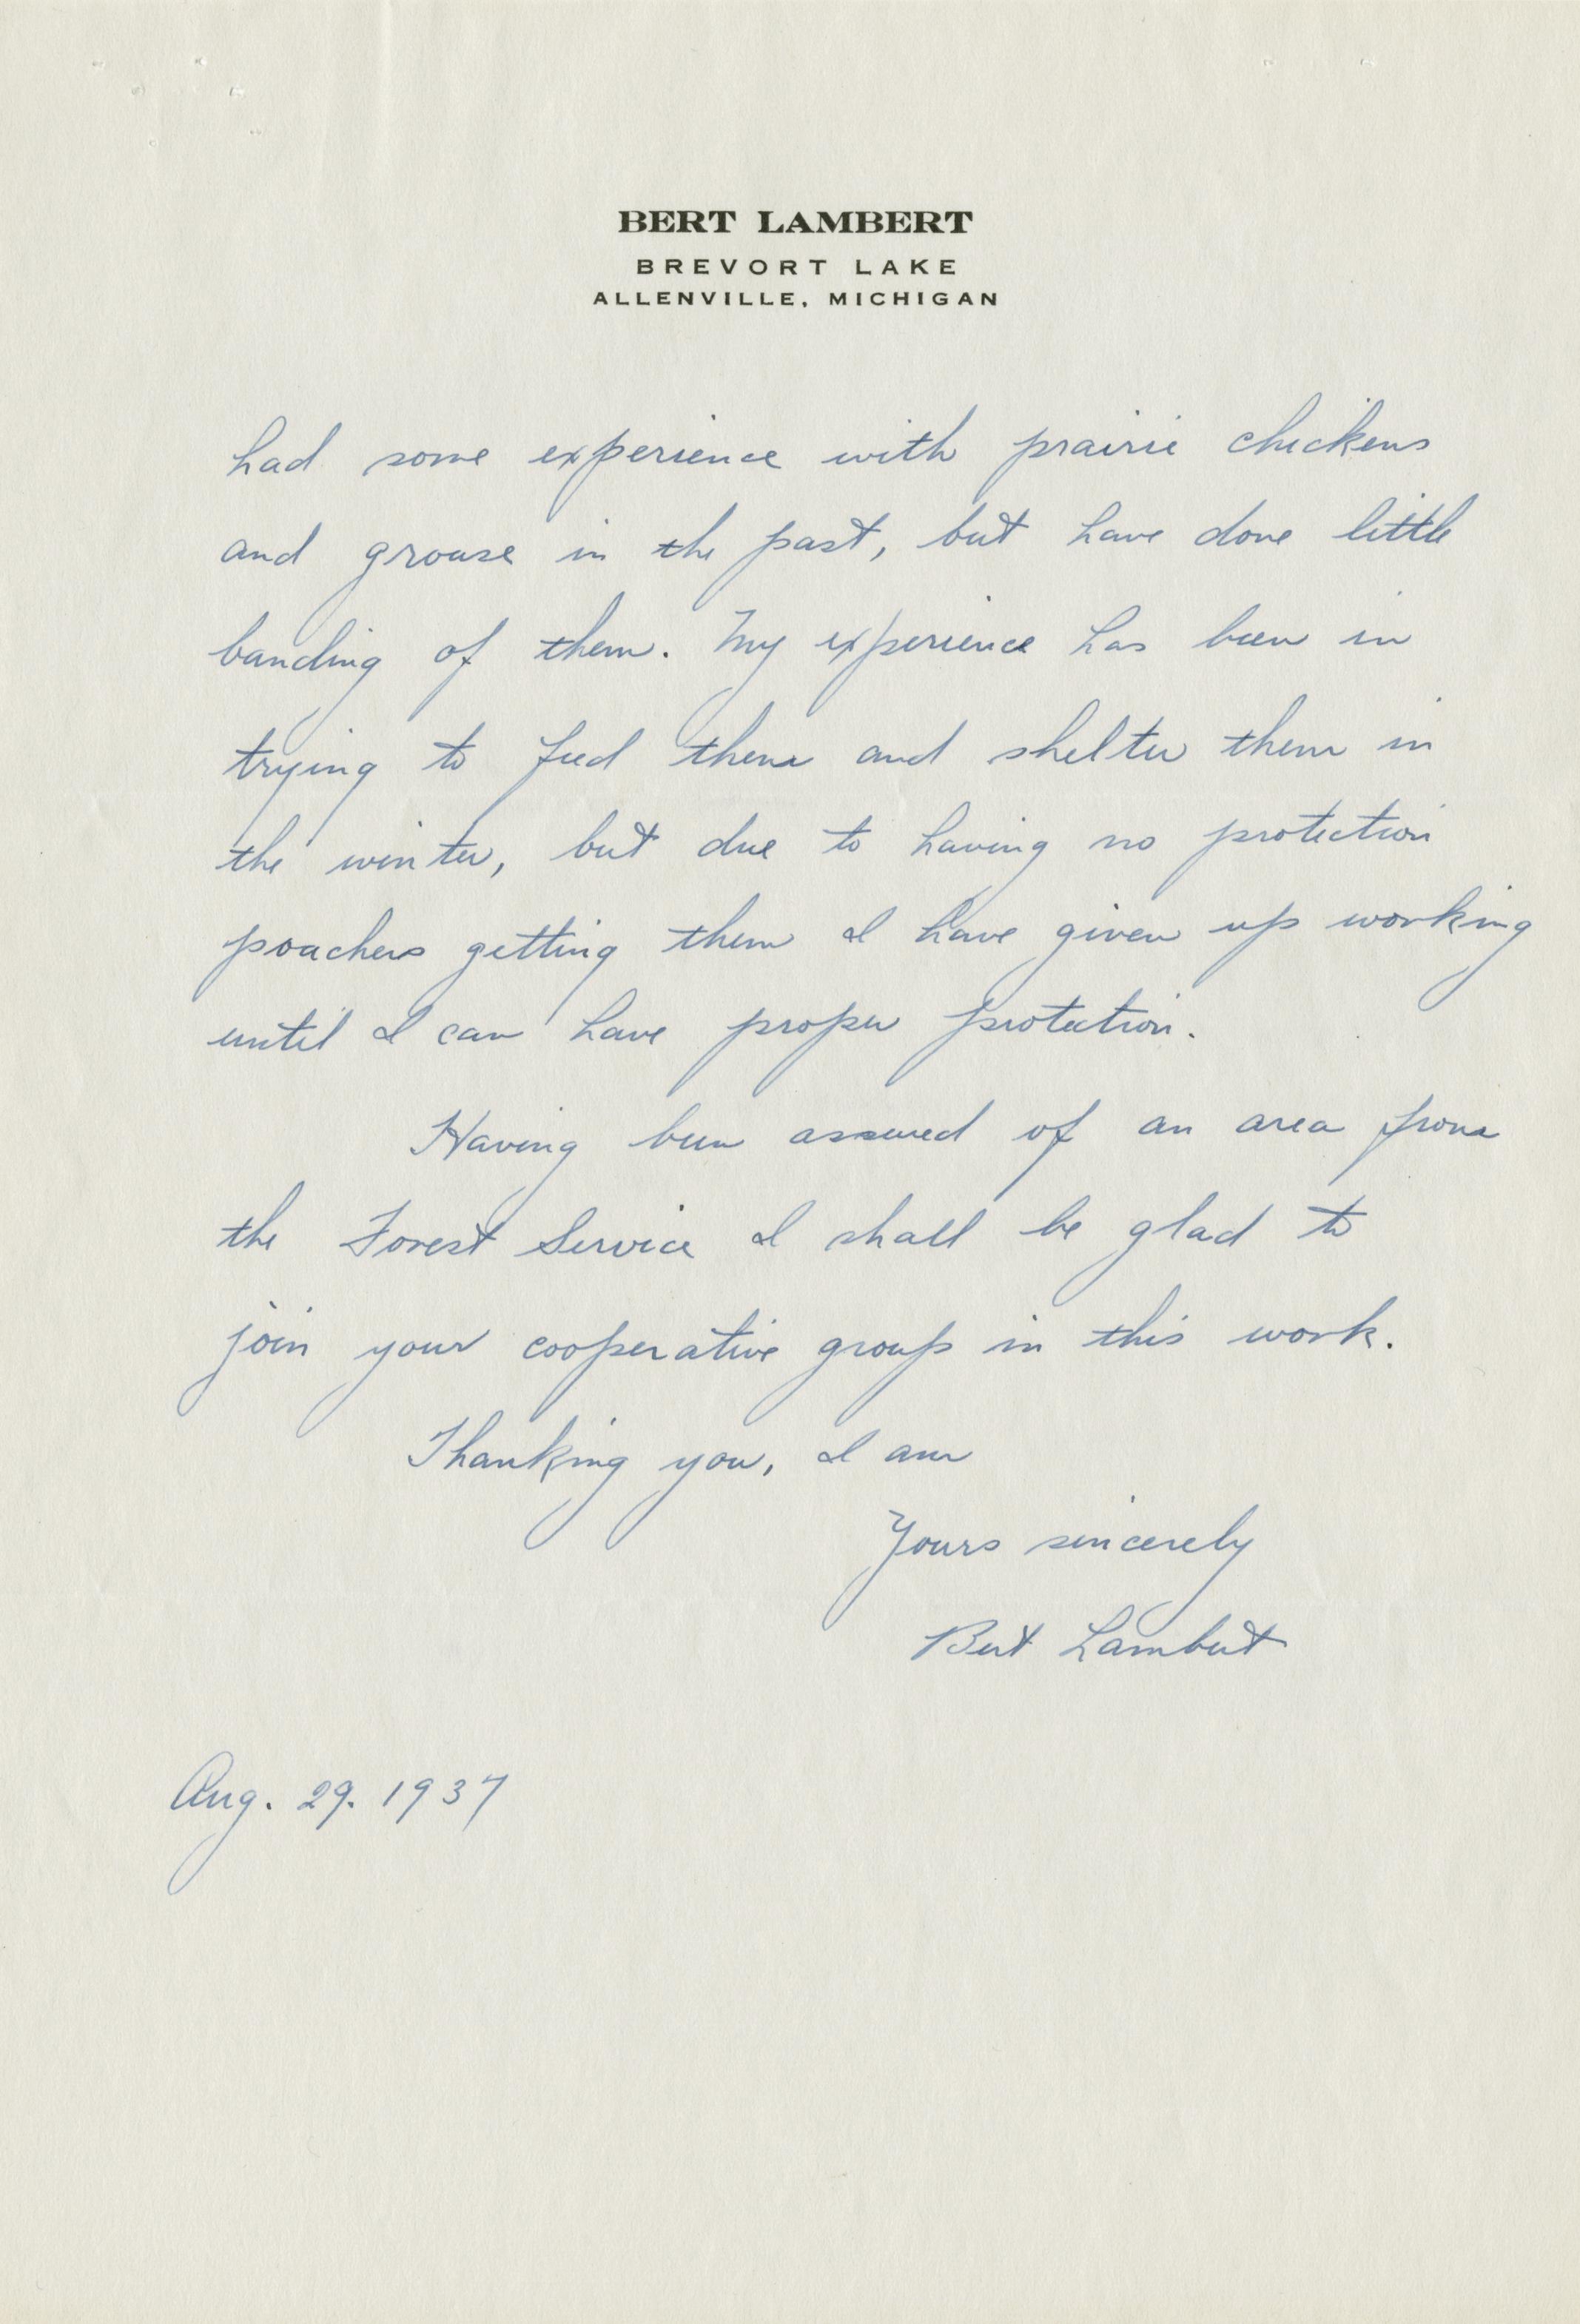 BERT LAMBERT
BREVORT LAKE
ALLENVILLE, MICHIGAN
had some experience with prairie chickens
and grouse in the past, but have done little
banding of them. My experience has been in
trying to feed them and shelter them in
the winter, but due to having no protection
poachers getting them I have given up working
until I can have proper protection.
Having been assured of an area from
the Forest Service I shall be glad to
join your cooperative group in this work.
Thanking you, I am
Yours sincerely
Bert Lambert
Aug. 29. 1937